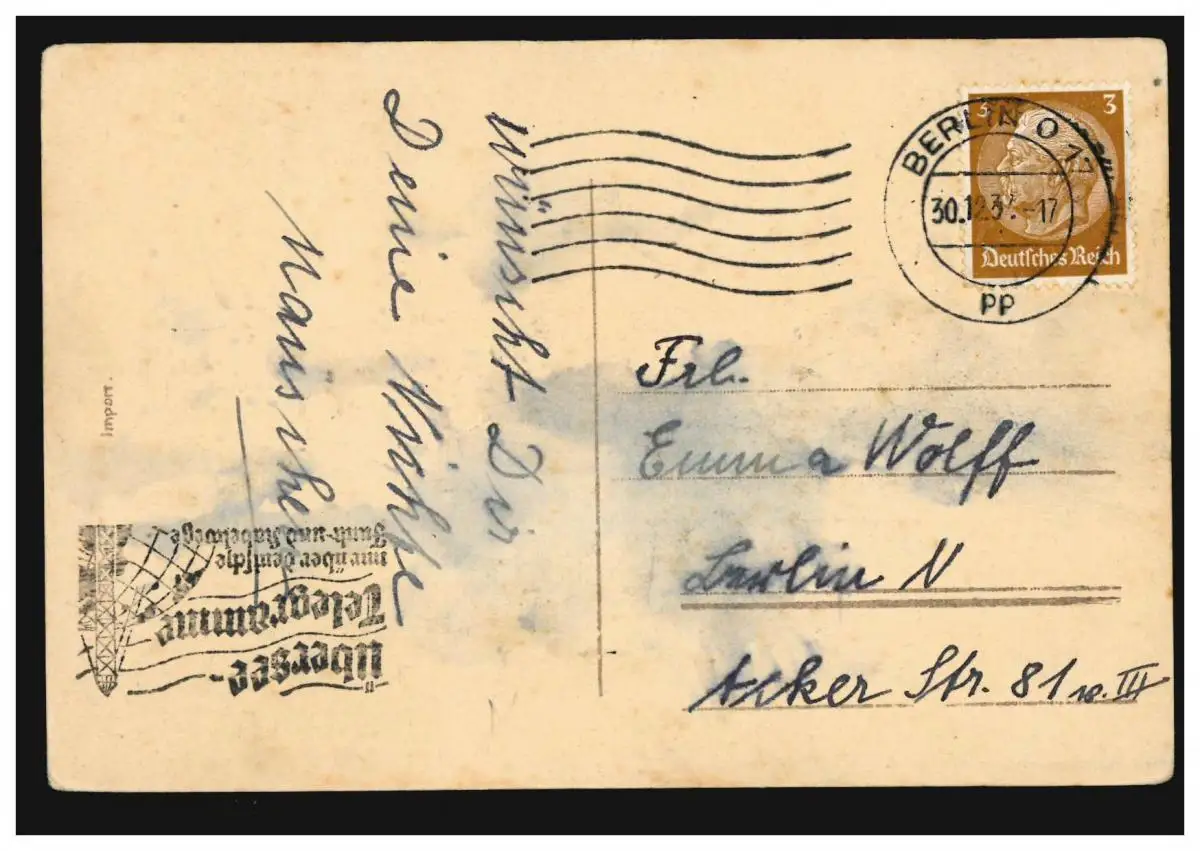 wünscht Dir
Deine
3 3
Deutsches Reich
BERLIN O 17
30.12.37.-17
pp
Frl.
Emma Wolff
Berlin N
Acker Str. 81 III
Import.
Übersee-
Telegramme
nur über deutsche
Funk- und Kabelwege